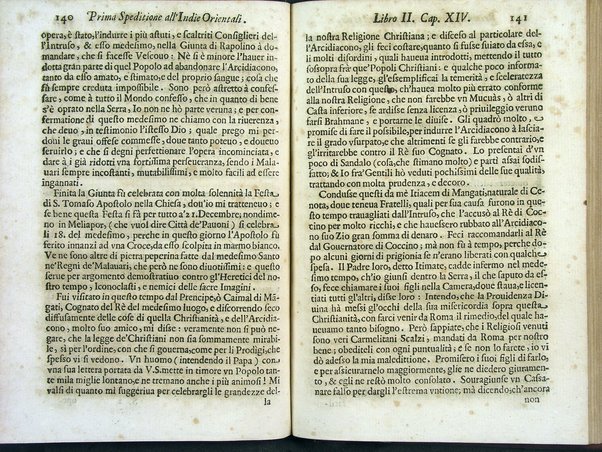 140 Prima Speditione all'Indie Orientali.
opera, è stato, l'indurre i più astuti, e scaltriti Consiglieri del-
l'Intruso, & esso medesimo, nella Giunta di Rapolino à do-
mandare, che si facesse Vescouo: Nè si è minore l'hauer in-
dotta gran parte di quel Popolo ad abandonare l'Arcidiacono,
tanto da esso amato, e stimato, e del proprio sangue; cosa che
fù sempre creduta impossibile. Sono però astretto à confes-
sare, come à tutto il Mondo confesso, che in quanto di bene
s'è oprato nella Serra, Io non ne hò parte veruna; e per con-
fermatione di questo medesimo ne chiamo con la riuerenza,
che deuo, in testimonio l'istesso Dio; quale prego mi per-
doni le graui offese commesse, doue tanto potuto, e doueuo
seruirlo; e che si degni perfettionare l'opera incominciata, e
dare à i già ridotti vna fortissima perseueranza, sendo i Mala-
uari sempre incostanti, mutabilissimi, e molto facili ad essere
ingannati.
Finita la Giunta fù celebrata con molta solennità la Festa
di S. Tomaso Apostolo nella Chiesa, dou'io mi tratteneuo; e
se bene questa Festa si fà per tutto a'21. Decembre; nondime-
no in Meliapor, (che vuol dire Città de'Pauoni) si celebra
li 18. del medesimo, perche in questo giorno l'Apostolo fù
ferito innanzi ad vna Croce, da esso scolpita in marmo bianco.
Ve ne sono altre di pietra peperina fatte dal medesimo Santo
ne'Regni de'Malauari, che però ne sono diuotissimi: e questo
serue per argomento demostratiuo contro gl'Heretici del no-
stro tempo, Iconoclasti, e nemici delle sacre Imagini.
Fui visitato in questo tempo dal Prencipe, ò Caimal di Mã-
gati, Cognato del Rè del medesimo luogo, e discorrendo seco
diffusamente delle cose di quella Christianità, e dell'Arcidia-
cono, molto suo amico, mi disse: veramente non si può ne-
gare, che la legge de'Christiani non sia sommamente mirabi-
le, sì per l'ordine, con che si gouerna, come per li Prodigi, che
spesso vi si vedono. Vn huomo (intendendo il Papa) con
vna sua lettera portata da V.S. mette in timore vn Popolo tan-
te mila miglia lontano, e ne tremano anche i più animosi! Mi
valsi di quanto mi suggeriua per celebrargli le grandezze del-
la
Libro II. Cap. XIV. 141
la nostra Religione Christiana; e disceso al particolare del-
l'Arcidiacono, gli feci costare, quanto si fusse suiato da essa, e
li molti disordini, quali haueua introdotti, mettendo il tutto
sossopra frà que'Popoli Christiani: e qualche poco informa-
to della sua legge, gl'essemplificai la temerità, e sceleratezza
dell'Intruso con questo, ch'haueua molto più errato conforme
alla nostra Religione, che non farebbe vn Mucuàs, ò altri di
Casta inferiore, se ardisse senza licenza, ò priuileggio veruno
farsi Brahmane; e portarne le diuise. Gli quadrò molto, e
promise di fare il possibile, per indurre l'Arcidiacono à lascia-
re il grado vsurpato, e che altrimenti se gli sarebbe contrario, e
gl'irritarebbe contro il Rè suo Cognato. Lo presentai d'vn
poco di Sandalo (cosa, che stimano molto) e partì assai sodis-
fatto; & Io frà Gentili hò veduti pochissimi delle sue qualità,
trattando con molta prudenza, e decoro.
Condusse questi da me Itiacem di Mangati, naturale di Ce-
nota, doue teneua Fratelli, quali per sua causa furono in que-
sto tempo trauagliati dall'Intruso, che l'accusò al Rè di Coc-
cino per molto ricchi, e che hauessero rubbato all'Arcidiaco-
no suo Zio gran somma di denaro. Feci raccomandarli al Rè
dal Gouernatore di Coccino; mà non fù à tempo, perche do-
po alcuni giorni di prigionia se n'erano liberati con qualche
spesa. Il Padre loro, detto Itimate, cadde infermo nel mede-
simo tempo, ch'io giunsi dentro la Serra, il che saputo da es-
so, fece chiamare i suoi figli nella Camera, doue staua, e licen-
tiati tutti gl'altri, disse loro: Intendo, che la Prouidenza Di-
uina hà mesi gl'occhi della sua misericordia sopra questa
Christianità, con farci venir da Roma il rimedio, del quale ha-
ueuamo tanto bisogno. Però sappiate, che i Religiosi venuti
sono veri Carmelitani Scalzi, mandati da Roma per nostro
bene; obediteli con ogni puntualità; e se non lo farete, io vi
dò adesso la mia maleditione. Promisero i suoi figli di farlo,
e per assicurarnelo maggiormente, glie ne diedero giuramen-
to, & egli ne restò molto consolato. Souragiunse vn Cassa-
nare fallo per dargli l'estrema vntione; mà dicendo, ch'ancora
non